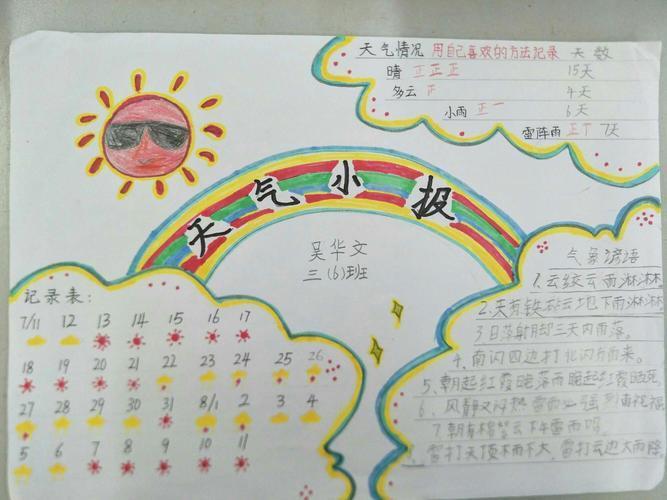 天气情况 用自己喜欢的方法记录 天数
晴 正正正 15天
多云 正 4天
小雨 正一 6天
雷阵雨 正丅 7天
天气小报
吴华文
三(6)班
记录表:
7/11 12 13 14 15 16 17
18 19 20 21 22 23 24 25 26
27 28 29 30 31 8/1 2 3 4
5 6 7 8 9 10 11
气象谚语
1、云绞云雨淋淋
2、天有铁砧云地下雨淋淋
3日落射脚三天内雨落。
4、南闪四边打北闪有雨来。
5、朝起红霞晚落雨晚起红霞晒死
6、风静又闷热雷雨必强烈
7、朝有棉絮云下午雷雨鸣。
雷打天顶雨不大,雷打云边大雨降